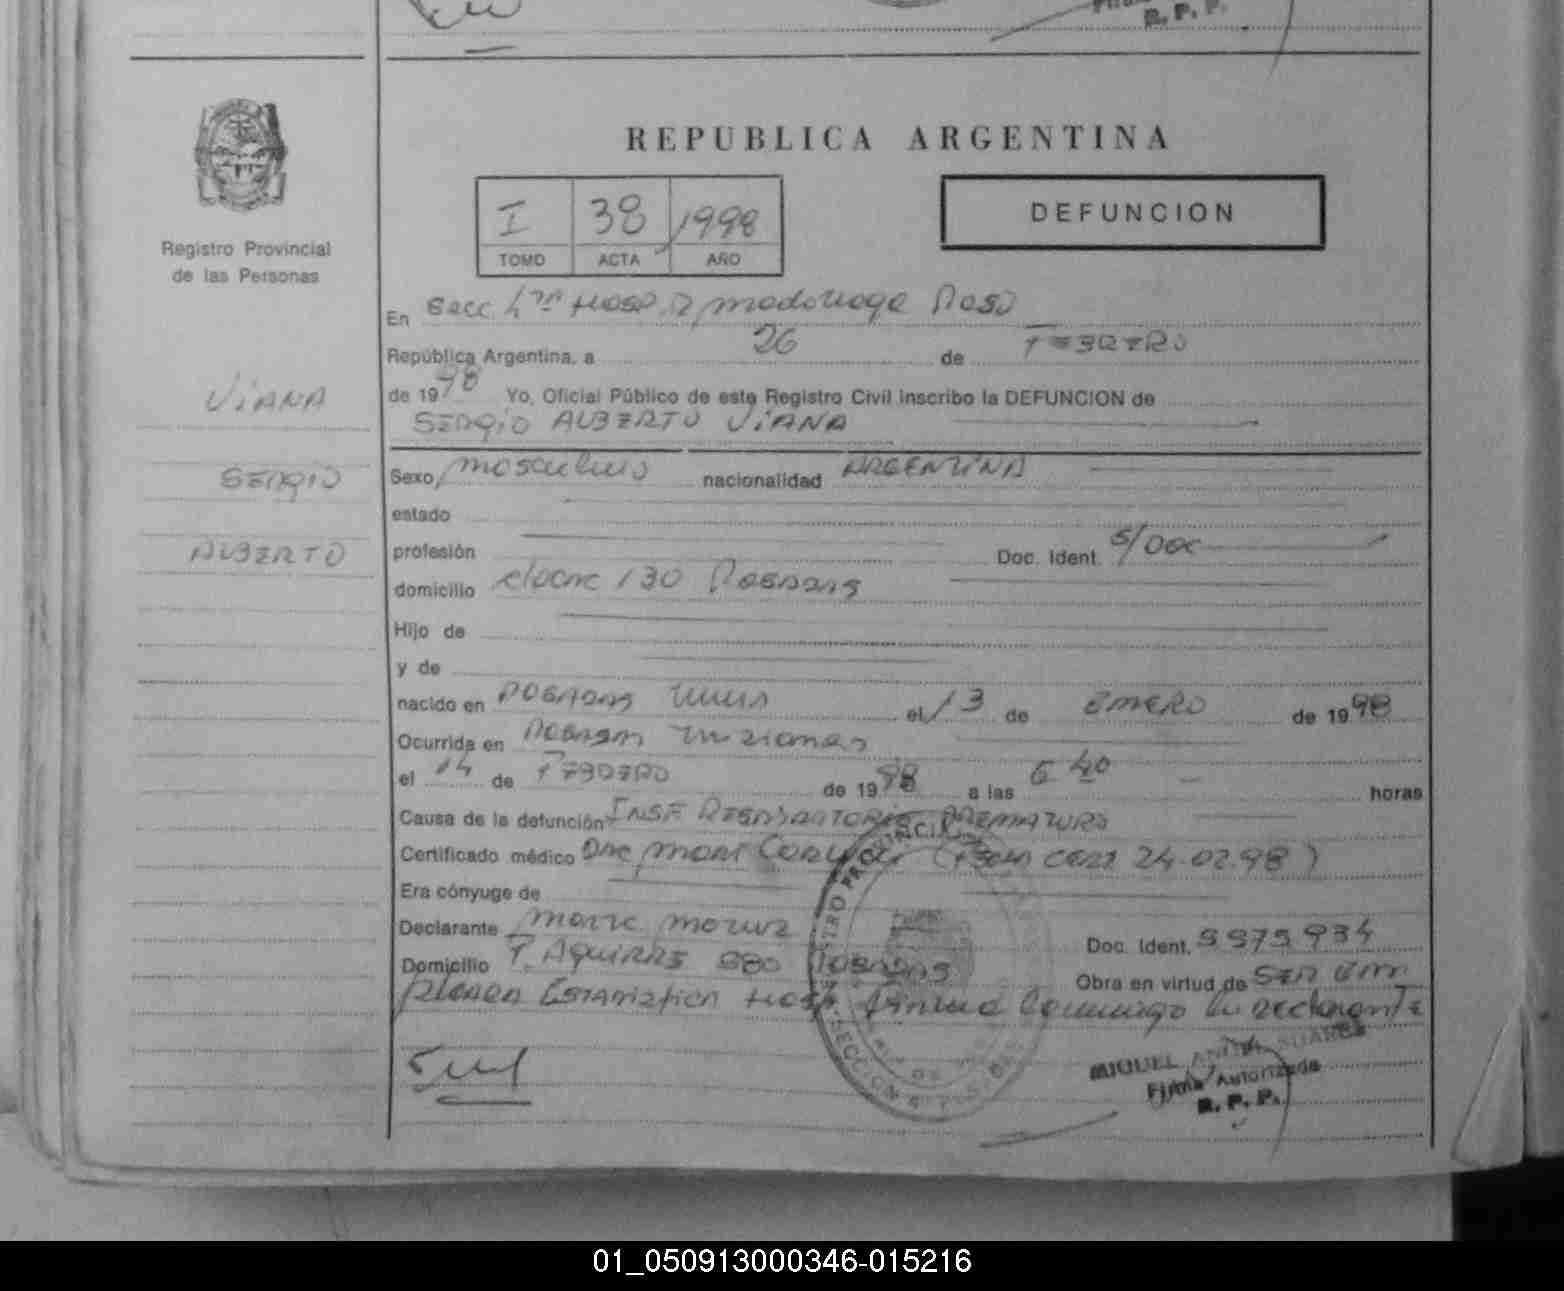 R. P. P.
REPUBLICA ARGENTINA
I 38 1998
TOMO ACTA AÑO
DEFUNCION
Registro Provincial
de las Personas
En Secc 4ta Hosp R Madariaga Pdas
República Argentina, a 26 de FEBRERO
de 1998 Yo, Oficial Público de este Registro Civil inscribo la DEFUNCION de
SERGIO ALBERTO VIANA
VIANA
SERGIO
ALBERTO
Sexo masculino nacionalidad ARGENTINA
estado
profesión Doc. Ident. S/Doc
domicilio 130 Posadas
Hijo de
y de
nacido en Posadas el 13 de ENERO de 1998
Ocurrida en Posadas Misiones
el 14 de FEBRERO de 1998 a las 6 40 horas
Causa de la defunción INSF RESPIRATORIA PREMATURO
Certificado médico 24.02.98)
Era cónyuge de
Declarante
Doc. Ident. 9975934
Domicilio F. AGUIRRE 980 Posadas
Obra en virtud de SER EMP
Estadistica Hosp firmando Conmigo la declarante
REGISTRO PROVINCIAL
SECCION 4 POSADAS
MIGUEL ANGEL SUAREZ
Firma Autorizada
R. P. P.
01_050913000346-015216